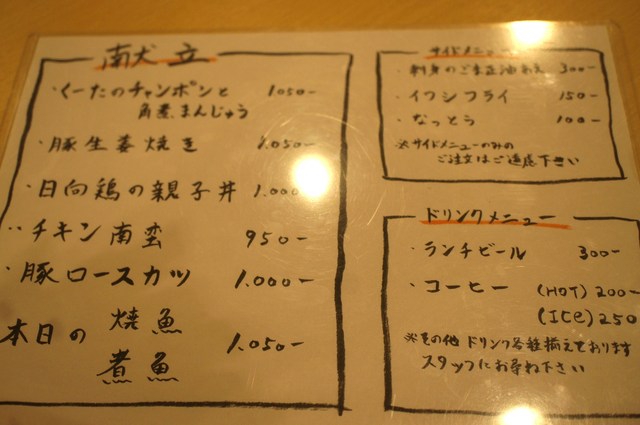 献立
・くーたのチャンポンと 1050-
角煮まんじゅう
・豚生姜焼き 1.050-
・日向鶏の親子丼 1.000
・チキン南蛮 950-
・豚ロースカツ 1.000-
本日の 焼魚
煮魚 1.050-
サイドメニュー
・刺身のごま正油あえ 300-
・イワシフライ 150-
・なっとう 100-
※サイドメニューのみの
ご注文はご遠慮下さい
ドリンクメニュー
・ランチビール 300-
・コーヒー (HOT) 200-
(ICE) 250
※その他 ドリンク各種揃えております
スタッフにお尋ね下さい